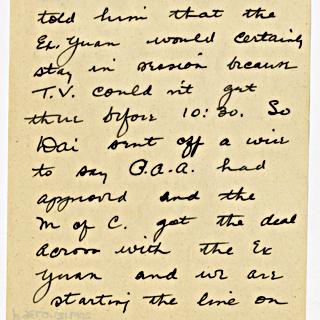 told him that the
Ex. Yuan would certainly
stay in session because
T.V. could n't get
there before 10:30. So
Dai sent off a wire
to say C.A.A. had
approved and the
M of C. got the deal
across with the Ex
Yuan and we are
starting the line on